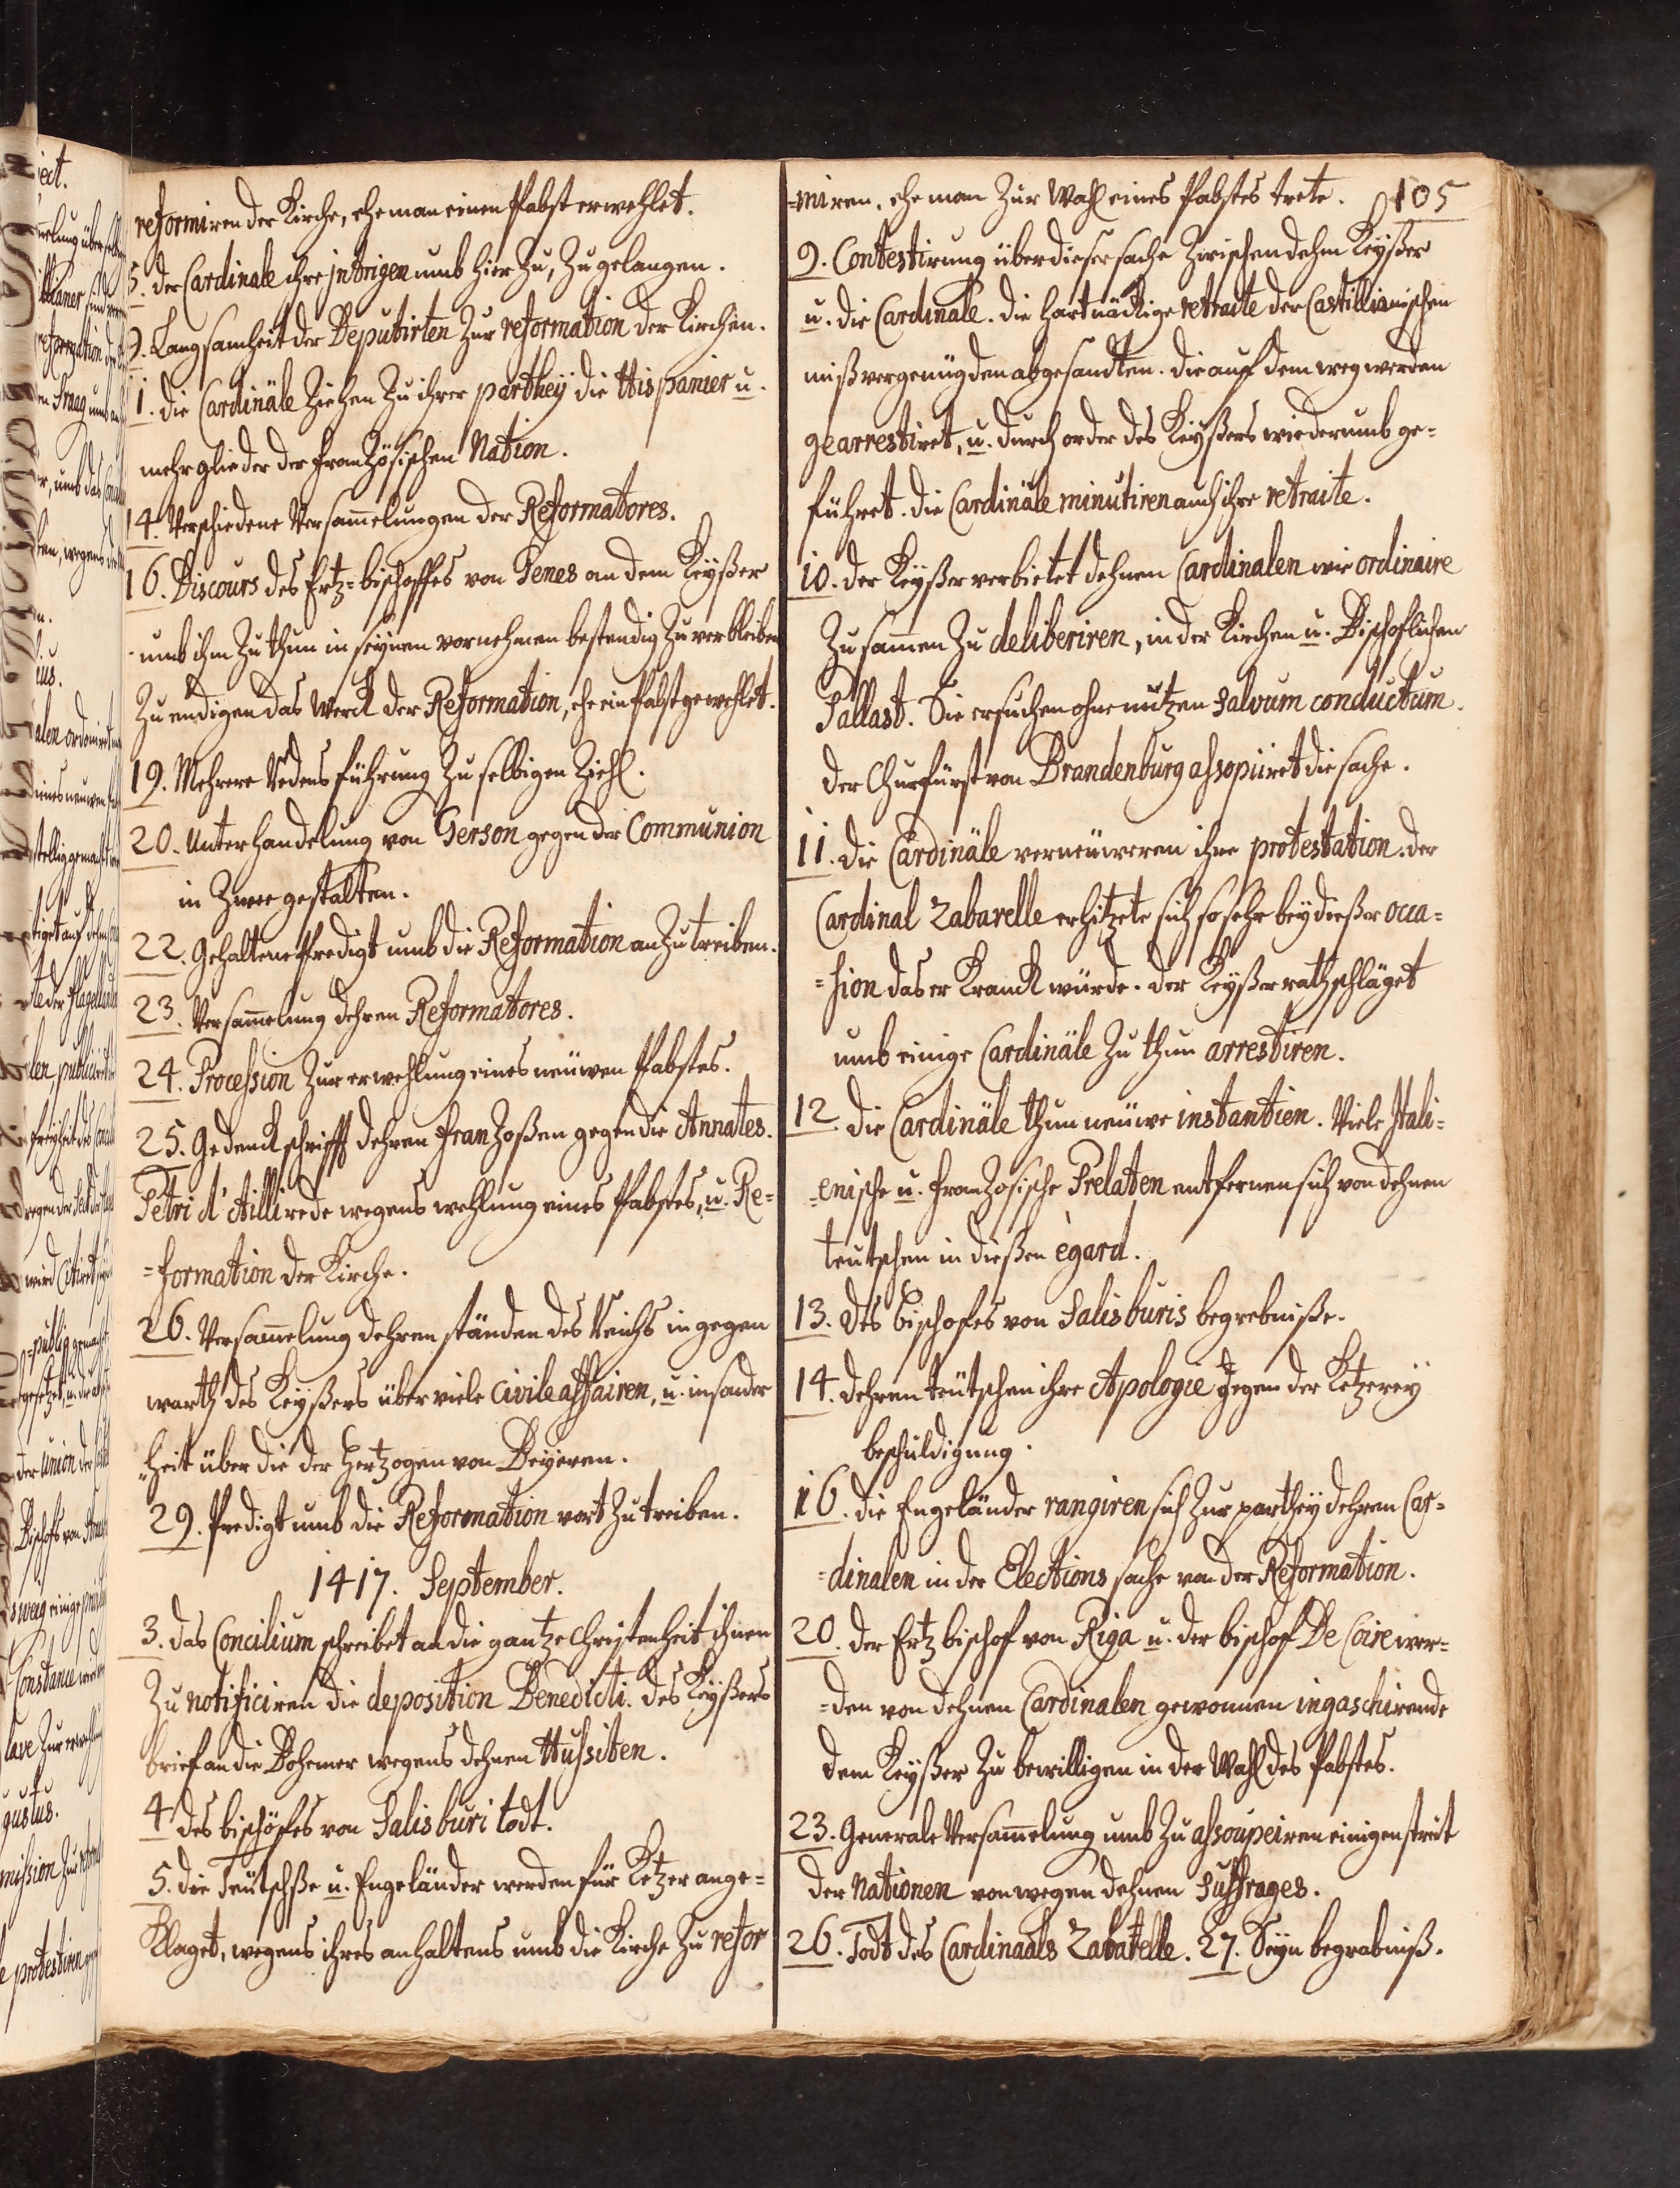 reformiren der Kirche, ehe man einen Pabst erwehlet.
5. der Cardinale ihre jntrigen umb hier zu, zu gelangen.
9. Langsamheit der Deputirten zur reformation der Kirchen.
1. die Cardinäle ziehen zu ihrer partheÿ die Hispanier u.
mehr glieder der französischen Nation.
14. Verschiedene Versam̄elungen der Reformatores.
16. Discours des Ertz=bischoffes von Genes an dem Keÿßer
umb ihm zu thun in seynen vornehmen bestendig zu verbleiben
zu endigen das werck der Reformation, ehe ein Pabst gewehlet.
19. Mehrere Redensführung zu selbigen Ziehl.
20. Unterhandelung von Gerson gegen der Communion
in zwee gestalten.
22. Gehaltene Predigt umb die Reformation anzutreiben.
23. Versam̄elung dehren Reformatores.
24. Procession zur erwehlung eines neüwen Pabstes.
25. Gedenckschrifft dehren Franzoßen gegen die Annates.
Petri d'Ailli rede wegens wehlung eines Pabstes, u. Re=
=formation der Kirche.
26. Versam̄elung dehren ständen des Reichs in gegen
warth des Keÿßers über viele civile affairen, u. insonder
"heit über die der Hertzogen von Beyeren.
29. Predigt umb die Reformation vort zu treiben.
1417. September.
3. das Concilium schreibet an die gantze Christenheit ihnen
zu notificiren die deposition Benedicti. des Keÿßers
brief an die Bohemer wegens dehnen Hussiten.
4 des bischöfes von Salisburi todt.
5. die Teutschße u. Engeländer werden für Ketzer ange=
Klaget, wegens ihres anhaltens umb die Kirche zu refor
=miren, ehe man zur Wahl eines Pabstes trete. 105
9. Contestirung über dieser sache zwischen dehm Keÿßer
u. die Cardinale. die hartnäckige retraite der Castillianischen
mißvergenügden abgesandten. die auf dem weg werden
gearrestiret, u. durch order des Keÿßers wiederumb ge=
führet. die Cardinäle minutiren auch ihre retraite.
10. der Keÿßer verbietet dehnen Cardinalen wie ordinaire
zusam̄en zu deliberiren, in der Kirchen u. Bischoflichen
Pallast. Sie ersuchen ohne nutzen salvum conductum.
der Churfürst von Brandenburg assopiiret die sache.
11. die Cardinäle verneüweren ihre protestation. der
Cardinal Zabarelle erhitzete sich so sehr beÿ dießer occa=
=sion das er Kranck würde. der Keÿßer rathschläget
umb einige Cardinäle zu thun arrestiren.
12 die Cardinäle thun neüwe instantien. Viele Itali=
=enische u. französische Prelaten entfernen sich von dehnen
teutschen in dießen égard.
13. des bischofes von Salisburis begrebniße.
14. dehren teütschen ihre Apologie gegen der Ketzereÿ
beschuldigung.
16. die Engeländer rangiren sich zur partheÿ dehren Car=
=dinalen in der Elections sache von der Reformation.
20. der Ertzbischof von Riga u. der bischof De Coire wer=
=den von dehnen Cardinalen gewonnen ingaschirende
dem Keÿßer zu bewilligen in der Wahl des Pabstes.
23. Generale Versam̄elung umb zu assoupeiren einigen streit
der Nationen von wegen dehnen Suffrages.
26. Todt des Cardinaals Zabatelle. 27. Seÿn begrabniß.